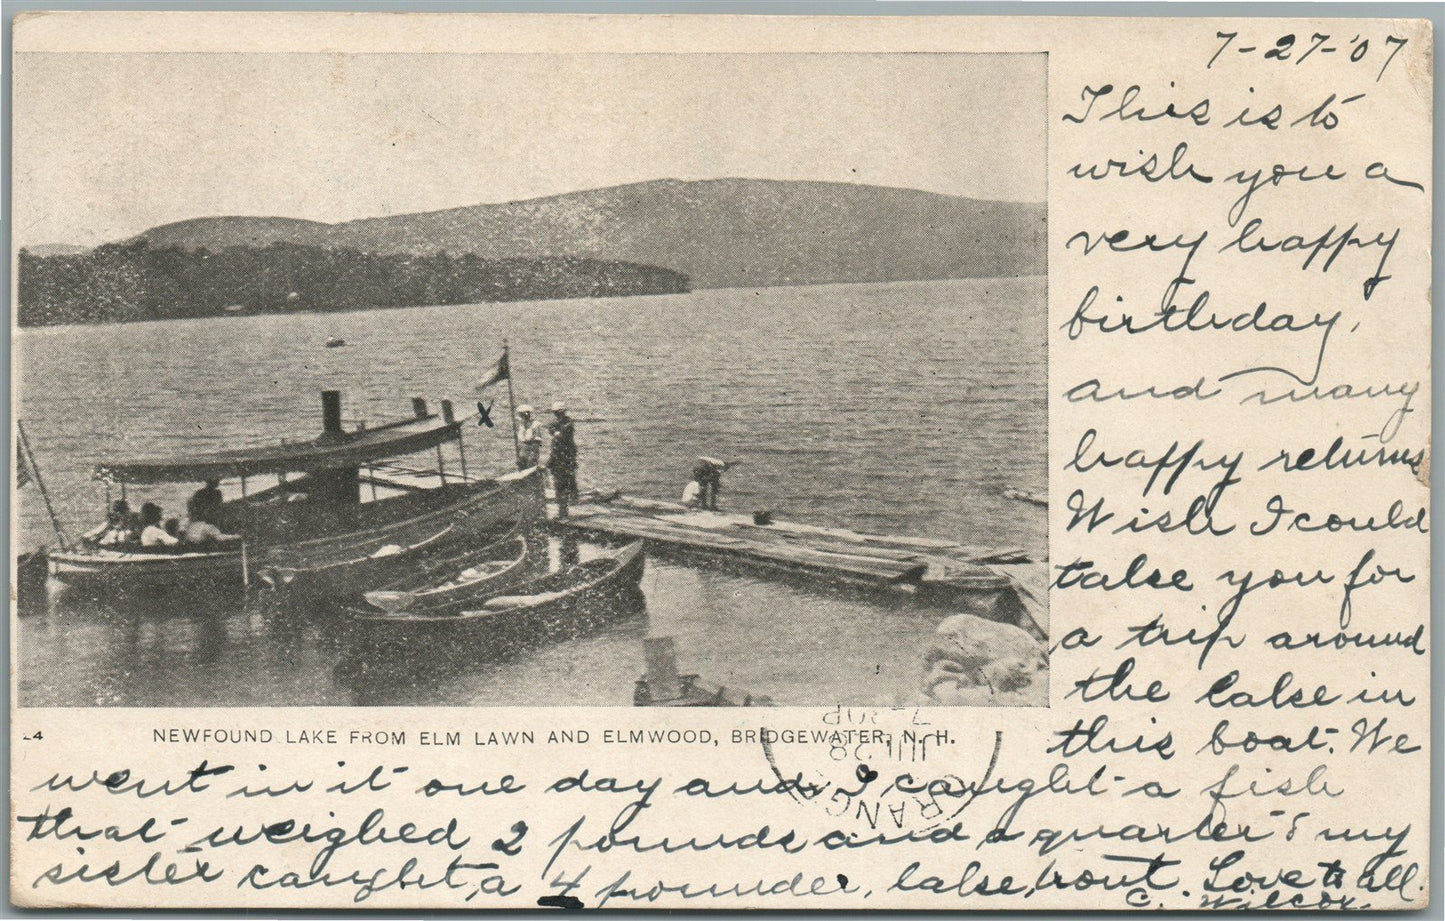 7-27-'07
This is to
wish you a
very happy
birthday,
and many
happy returns
Wish I could
take you for
a trip around
the lake in
this boat. We
24
NEWFOUND LAKE FROM ELM LAWN AND ELMWOOD, BRIDGEWATER, N. H.
went in it one day and I caught a fish
that weighed 2 pounds and a quarter & my
sister caught a 4 pounder, lake trout. Love to all.
C. Wilcox.
JUL 28
7-30P
RANG